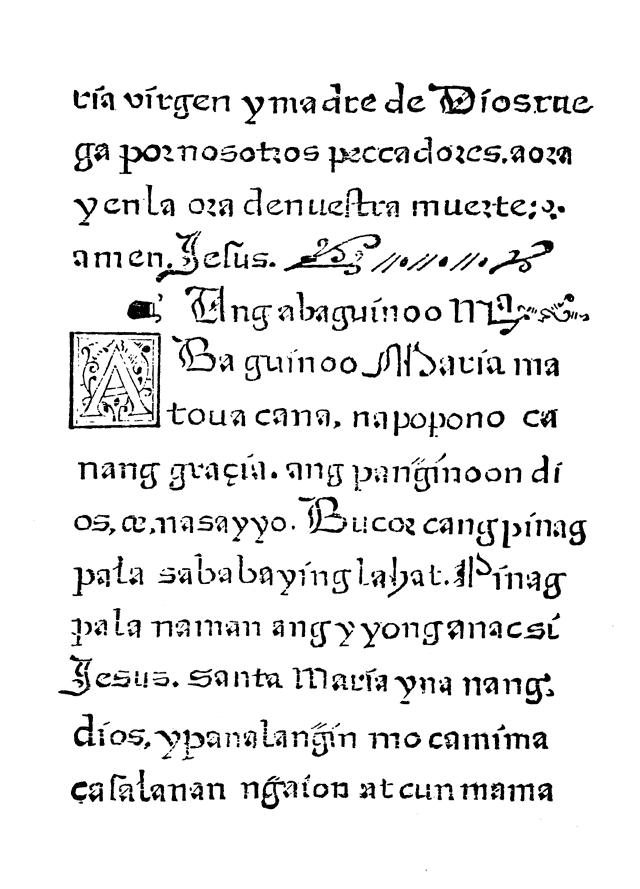 ria virgen y madre de Dios rue
ga por nosotros peccadores. aora
y en la ora de nuestra muerte;
amen. Jesus.
Ang aba guinoo Ma
ABa guinoo Maria ma
toua cana, napopono ca
nang graçia. ang pang̃inoon di
os, æ, nasayyo. Bucor cang pinag
pala sa babaying lahat. Pinag
pala naman ang yyong anac si
Jesus. santa Maria yna nang,
dios, ypanalang̃in mo camima
casalanan ng̃aion at cun mama